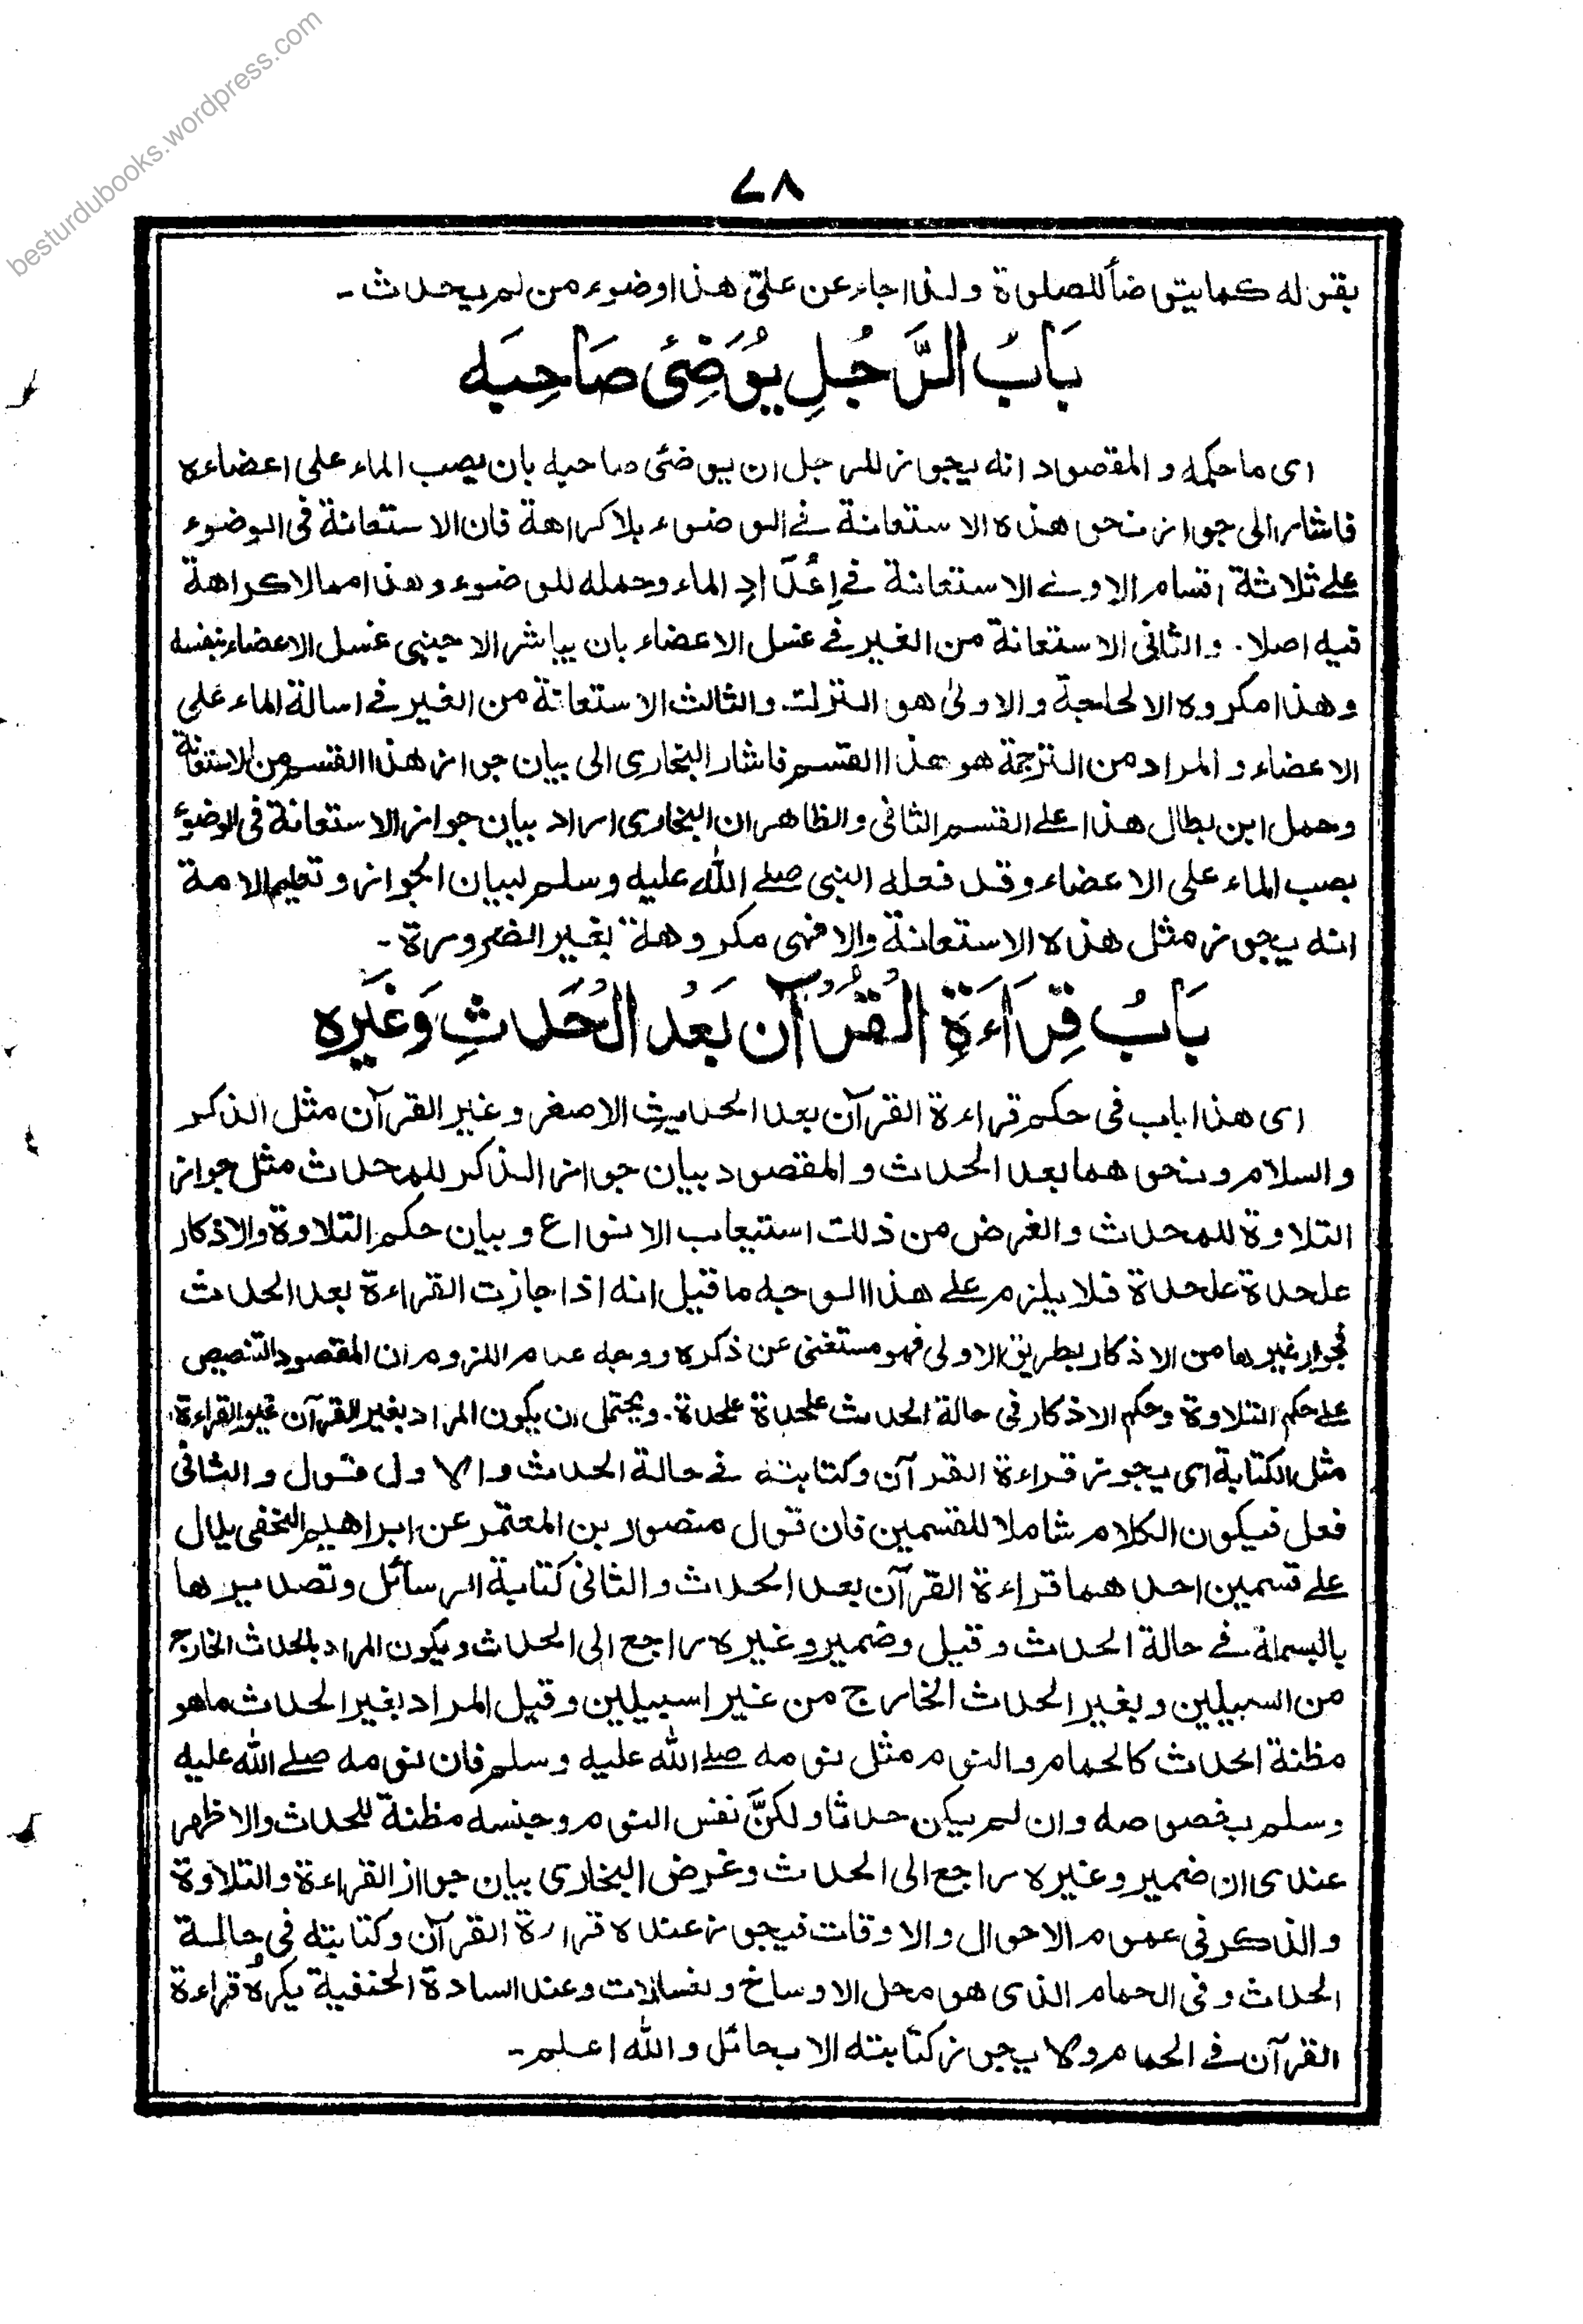 besturdubooks.wordpress.com
۷۸
بقوله كما يتوضأ للصلوة ولذا جاء عن علىّ هذا وضوء من لم يحدث -
بَابُ الرَّجُلِ يُوَضِّئُ صَاحِبَه
اى ما حكمه و المقصود انه يجوز للرجل ان يوضئى صاحبه بان يصب الماء على اعضاءه
فاشار الى جواز نحو هذه الاستعانة فى الوضوء بلا كراهة فان الاستعانة فى الوضوء
على ثلاثة اقسام الاولى الاستعانة فى إعْدَادِ الماء وحمله للوضوء و هذا مما لا كراهة
فيه اصلا. والثانى الاستعانة من الغير فى غسل الاعضاء بان يباشر الاجنبى غسل الاعضاء بنفسه
وهذا مكروه الا لحاجة والاولىٰ هو الترك والثالث الاستعانة من الغير فى اسالة الماء على
الاعضاء و المراد من الترجمة هو هذا القسم فاشار البخارى الى بيان جواز هذا القسم من الاستعانة
وحمل ابن بطال هذا على القسم الثانى والظاهر ان البخارى اراد بيان جواز الاستعانة فى الوضوء
بصب الماء على الاعضاء وقد فعله النبى صلى الله عليه وسلم لبيان الجواز و تعليم الامة
انه يجوز مثل هذه الاستعانة والا فهى مكروهة بغير الضرورة -
بَابُ قِرَاءَةِ الْقُرْآن بَعْدَ الْحَدَثِ وَغَيْرِه
اى هذا باب فى حكم قراءة القرآن بعد الحديث الاصغر و غير القرآن مثل الذكر
والسلام ونحوهما بعد الحدث و المقصود بيان جواز الذكر للمحدث مثل جواز
التلاوة للمحدث والغرض من ذلك استيعاب الانواع وبيان حكم التلاوة والاذكار
علحدة علحدة فلا يلزم على هذا الوجه ما قيل انه اذا جازت القراءة بعد الحدث
فجواز غيرها من الاذكار بطريق الاولى فهو مستغنى عن ذكره ووجه عدم اللزوم ان المقصود التنصيص
على حكم التلاوة وحكم الاذكار فى حالة الحدث علحدة علحدة. ويحتمل ان يكون المراد بغير القرآن غير القراءة
مثل الكتابة اى يجوز قراءة القرآن وكتابته فى حالة الحدث والاول قول والثانى
فعل فيكون الكلام شاملا للقسمين فان قول منصور بن المعتمر عن ابراهيم النخعى يدل
على قسمين احدهما قراءة القرآن بعد الحدث والثانى كتابة الرسائل وتصديرها
بالبسملة فى حالة الحدث وقيل وضمير وغيره راجع الى الحدث ويكون المراد بالحدث الخارج
من السبيلين وبغير الحدث الخارج من غير اسبيلين وقيل المراد بغير الحدث ما هو
مظنة الحدث كالحمام والنوم مثل نومه صلى الله عليه وسلم فان نومه صلى الله عليه
وسلم بخصوصه وان لم يكن حدثا ولكنَّ نفس النوم وجنسه مظنة للحدث والاظهر
عندى ان ضمير وغيره راجع الى الحدث وغرض البخارى بيان جواز القراءة والتلاوة
والذكر فى عموم الاحوال والاوقات فيجوز عنده قراءة القرآن وكتابته فى حالة
الحدث وفى الحمام الذى هو محل الاوساخ وغسالات وعند السادة الحنفية يكره قراءة
القرآن فى الحمام ولا يجوز كتابته الا بحائل والله اعلم -